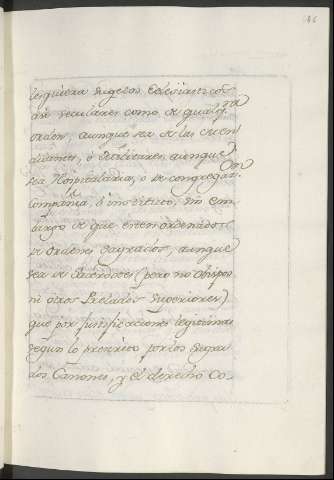 lesquiera sugetos Eclesiasticos,
asi seculares como de qualq.ra
orden, aunque sea de las men
dicantes, ó Militares, aunque
sea Hospitalaria, o de congregac.on
Compañia, ó instituto, sin em
bargo de que esten ordenados
de ordenes Sagrados, aunque
sea de Sacerdotes (pero no Obispos
ni otros Prelados Superiores)
que por justificaciones legitimas
segun lo prescrito por los Sagra
dos Canones, y el derecho Co-